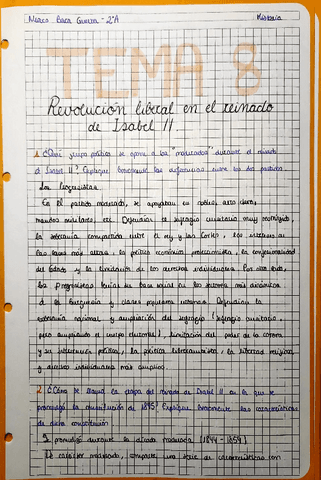 Marco Baca Guerra - 2ºA
Historia
TEMA 8
Revolución liberal en el reinado
de Isabel II.
1. ¿Qué grupo político se opone a los "moderados" durante el reinado
de Isabel II? Explique brevemente las diferencias entre los dos partidos.
Los Progresistas.
En el partido moderado, se apoyaban en nobles, alto clero,
mandos militares, etc. Defendían el sufragio censitario muy restringido,
la soberanía compartida entre el rey y las Cortes, los intereses de
las clases más altas, la política económica proteccionista, la confesionalidad
del Estado y la limitación de los derechos individuales. Por otro lado,
los Progresistas tenían su base social en los sectores más dinámicos
de la burguesía y clases populares urbanas. Defendían la
soberanía nacional, y ampliación del sufragio (sufragio censitario,
pero ampliando el cuerpo electoral), limitación del poder de la corona
y su intervención política, la política librecambista, la libertad religiosa,
y derechos individuales más amplios.
2. ¿Cómo se llamó la etapa del reinado de Isabel II en la que se
promulgó la constitución de 1845? Explique brevemente las características
de dicha constitución
Se promulgó durante la década moderada (1844-1854)
De carácter moderado, comparte una serie de características con